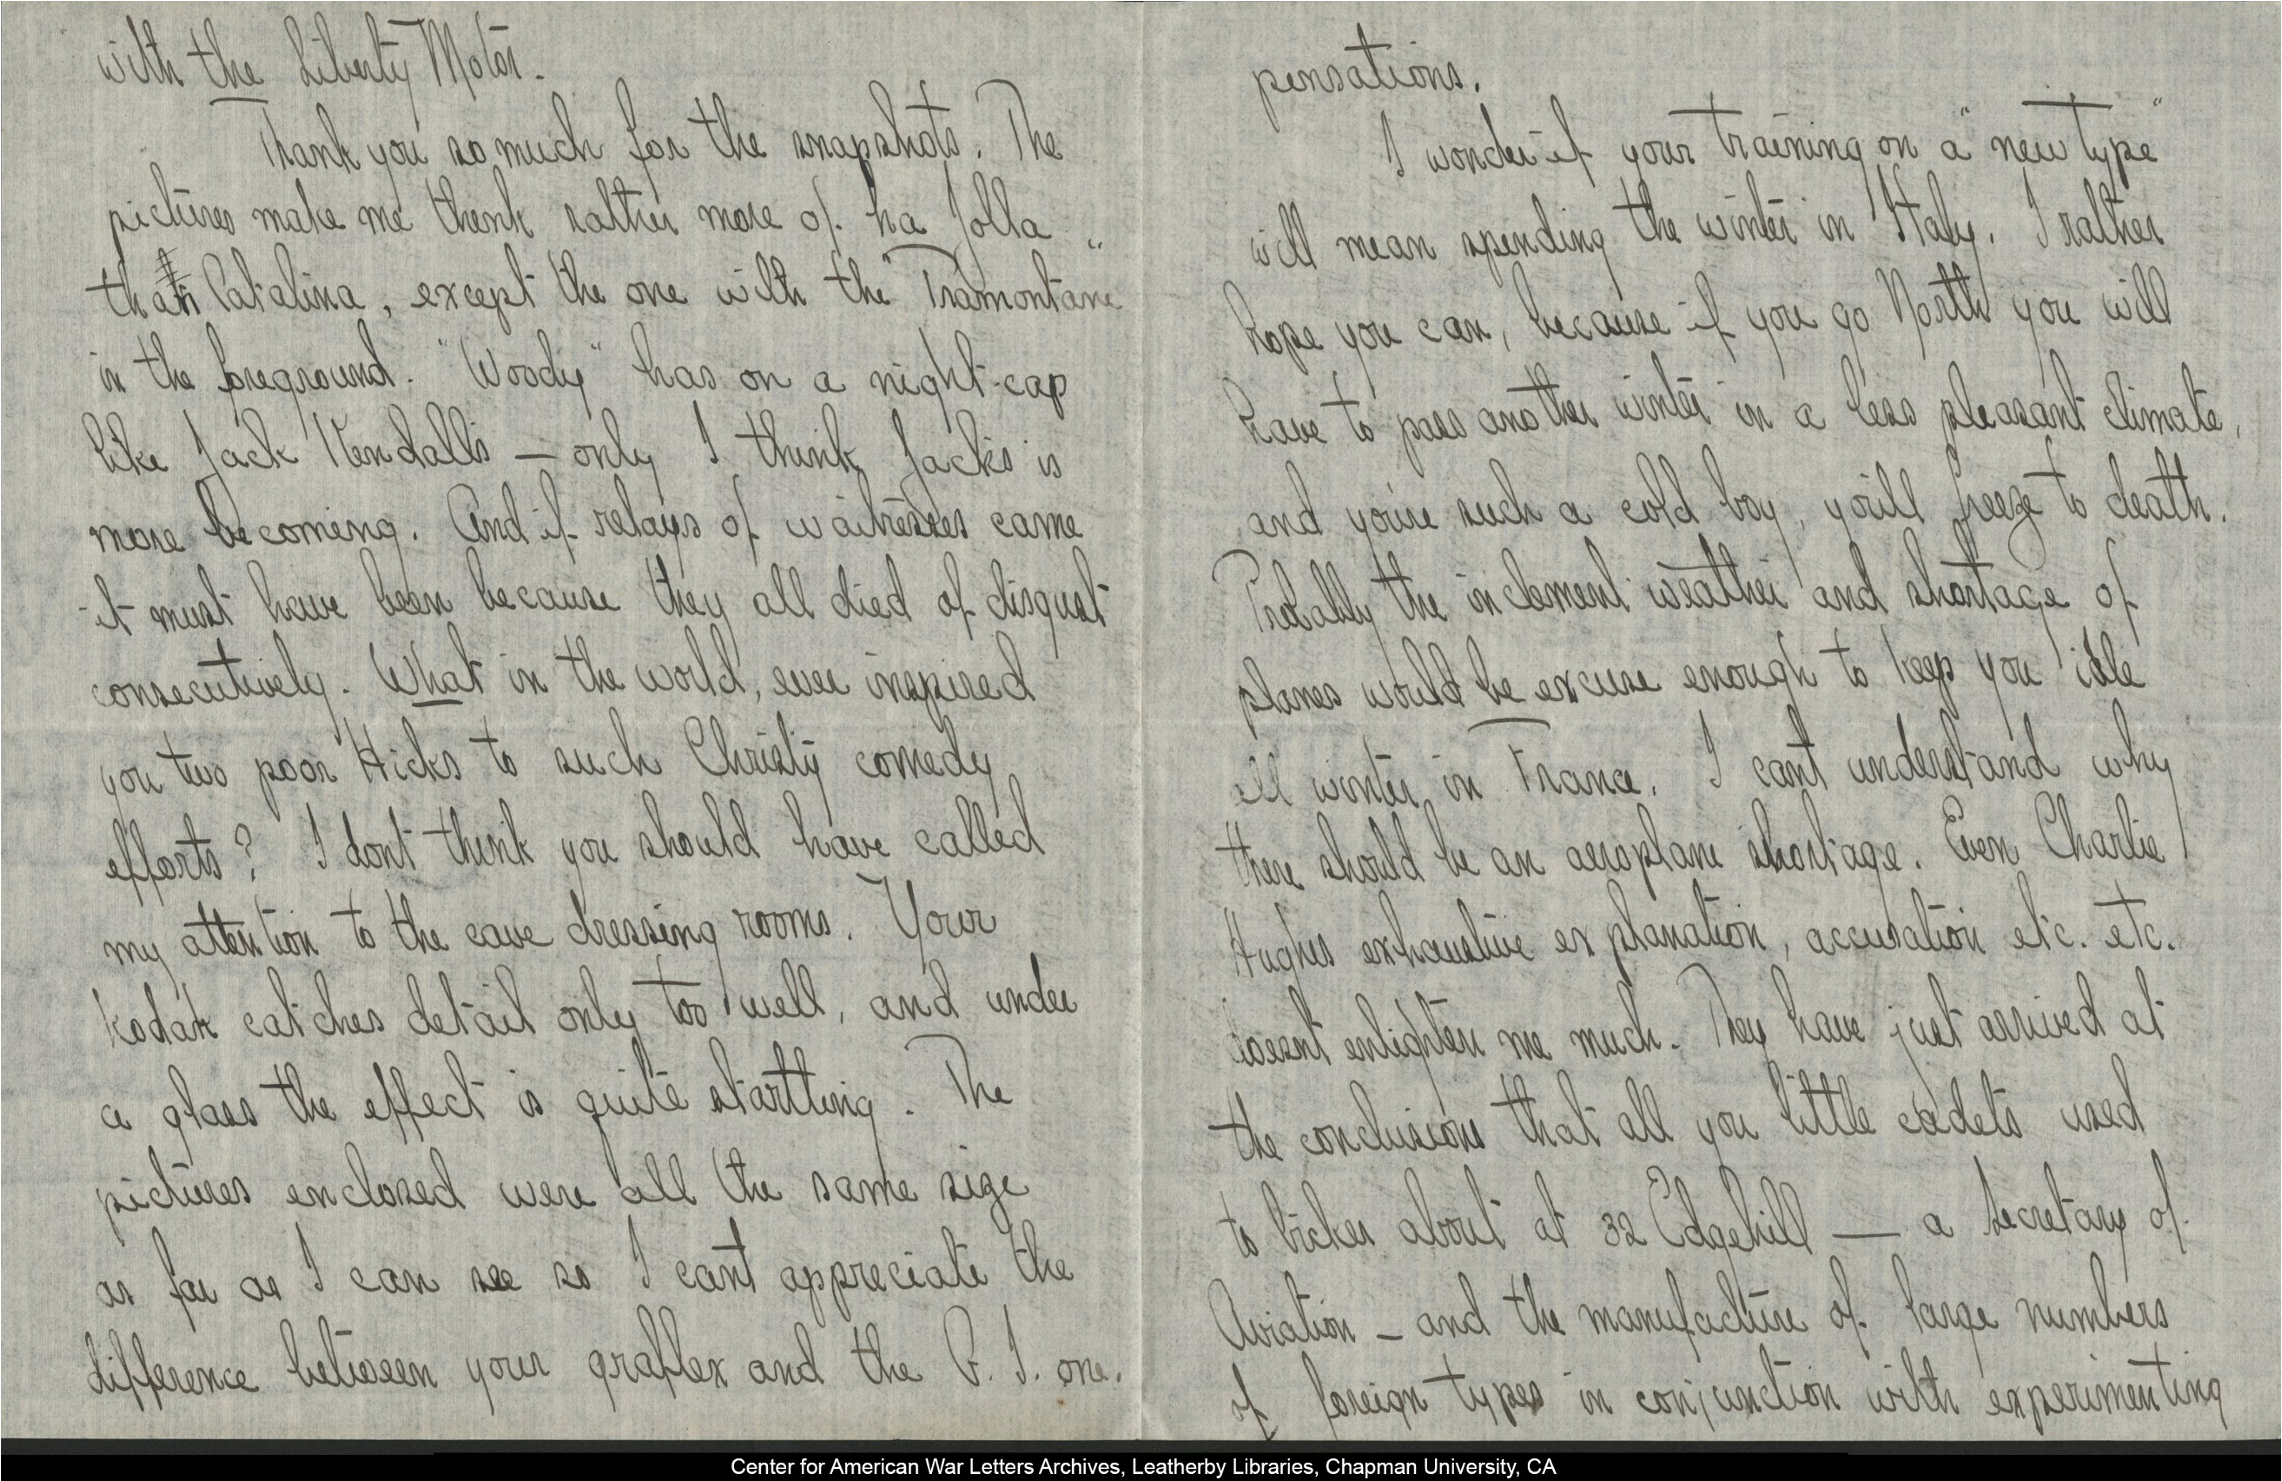 with the Liberty Motor.
Thank you so much for the snapshots. The
pictures make me think rather more of La Jolla
than Catalina, except the one with the "Tramontane"
in the foreground. "Woody" has on a night-cap
like Jack Kendalls — only I think Jacks is
more becoming. And if relays of waitresses came
it must have been because they all died of disgust
consecutively. What in the world, ever inspired
you two poor Hicks to such Christy comedy
efforts? I dont think you should have called
my attention to the cave dressing rooms. Your
kodak catches detail only too well, and under
a glass the effect is quite startling. The
pictures enclosed were all the same size
as far as I can see so I cant appreciate the
difference between your graflex and the one.
pensations.
I wonder if your training on a "new type"
will mean spending the winter in Italy. I rather
hope you can, because if you go North you will
have to pass another winter in a less pleasant climate,
and you're such a cold boy, you'll freeze to death.
Probably the inclement weather and shortage of
planes would be excuse enough to keep you idle
all winter in France. I cant understand why
there should be an aeroplane shortage. Even Charlie
Hughes exhaustive explanation, accusation etc. etc.
doesnt enlighten me much. They have just arrived at
the conclusions that all you little cadets used
to bicker about at 32 Edgehill — a Secretary of
Aviation — and the manufacture of large numbers
of foreign types in conjunction with experimenting
Center for American War Letters Archives, Leatherby Libraries, Chapman University, CA